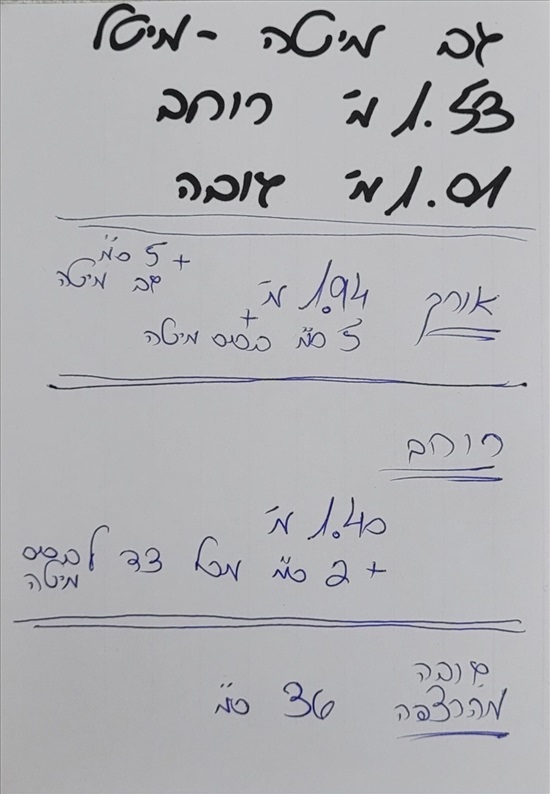 גב מיטה - מיטל
1.53 מ' רוחב
1.01 מ' גובה
אורך 1.94 מ' + 5 ס"מ
גב מיטה
+
5 ס"מ בסיס מיטה
רוחב
1.40 מ'
+ 2 ס"מ מכל צד לבסיס
מיטה
גובה
מהרצפה 36 ס"מ